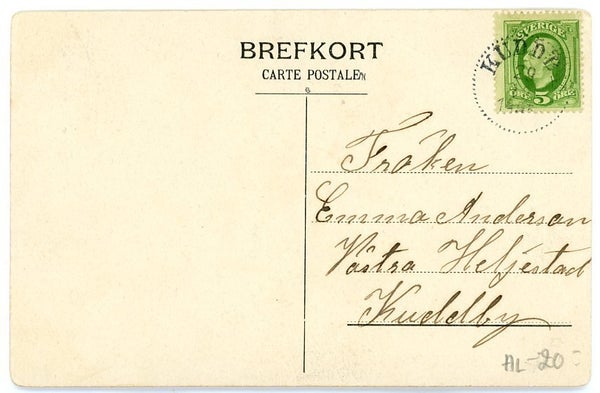 BREFKORT
CARTE POSTALE
SVERIGE
KUDDB
ÖRE 5 ÖRE
Fröken
Emma Anderson
Västra Heljestad
Kuddby
AL-20:-